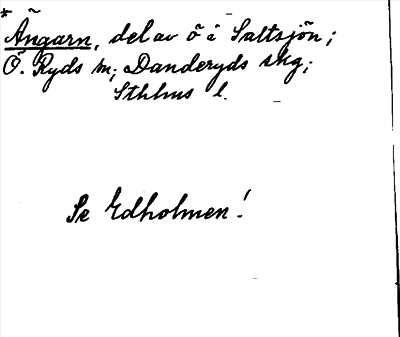 * Ängarn, del av ö i Saltsjön;
Ö. Ryds sn; Danderyds skg;
Sthlms l.
Se Edholmen!